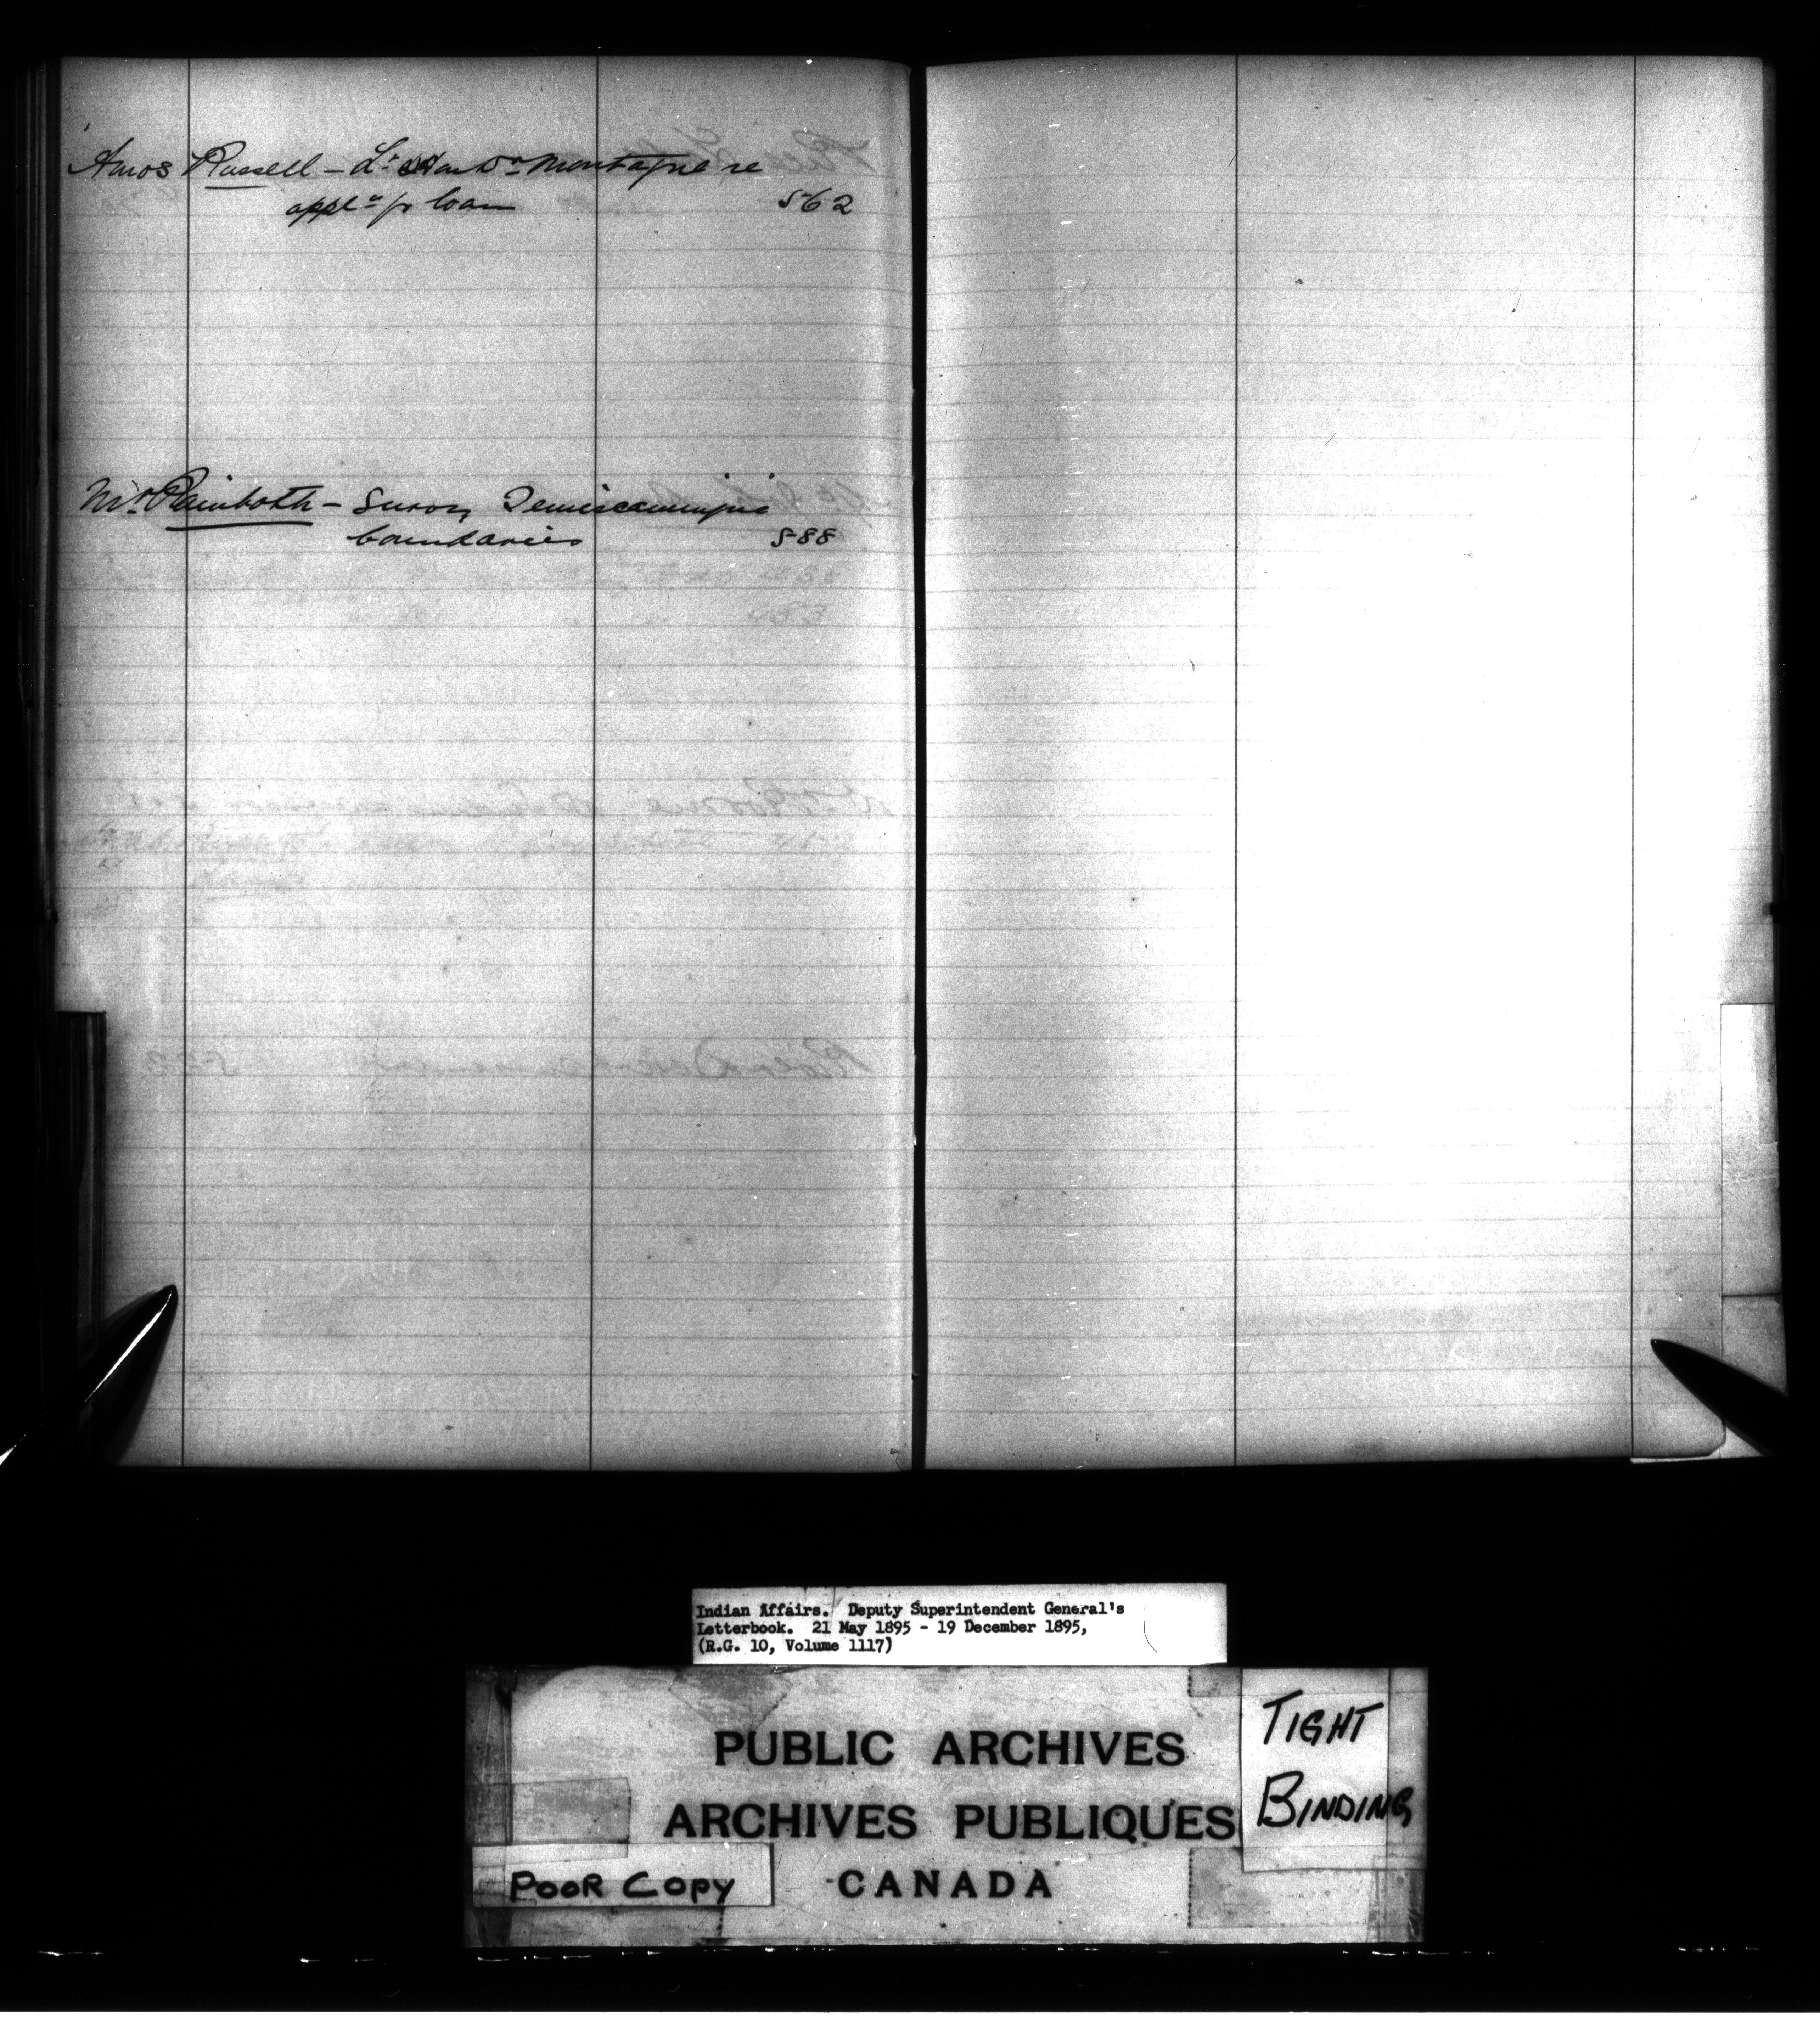 Amos Russell - Lr. Hon Dr. Montague re
appln fr loan 562
Mr. Rainboth - Survey Temiscamingue
boundaries 588
Indian Affairs. Deputy Superintendent General's
Letterbook. 21 May 1895 - 19 December 1895,
(R.G. 10, Volume 1117)
PUBLIC ARCHIVES
ARCHIVES PUBLIQUES
CANADA
TIGHT
BINDING
POOR COPY